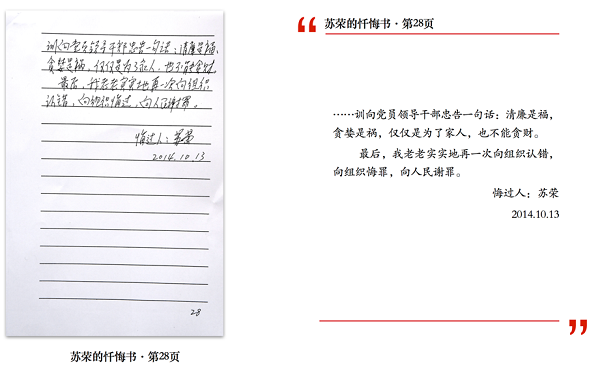 训向党员领导干部忠告一句话：清廉是福，
贪婪是祸，仅仅是为了家人，也不能贪财。
最后，我老老实实地再一次向组织
认错，向组织悔过，向人民谢罪。
悔过人：苏荣
2014.10.13
28
苏荣的忏悔书·第28页
苏荣的忏悔书·第28页
……训向党员领导干部忠告一句话：清廉是福，
贪婪是祸，仅仅是为了家人，也不能贪财。
最后，我老老实实地再一次向组织认错，
向组织悔罪，向人民谢罪。
悔过人：苏荣
2014.10.13